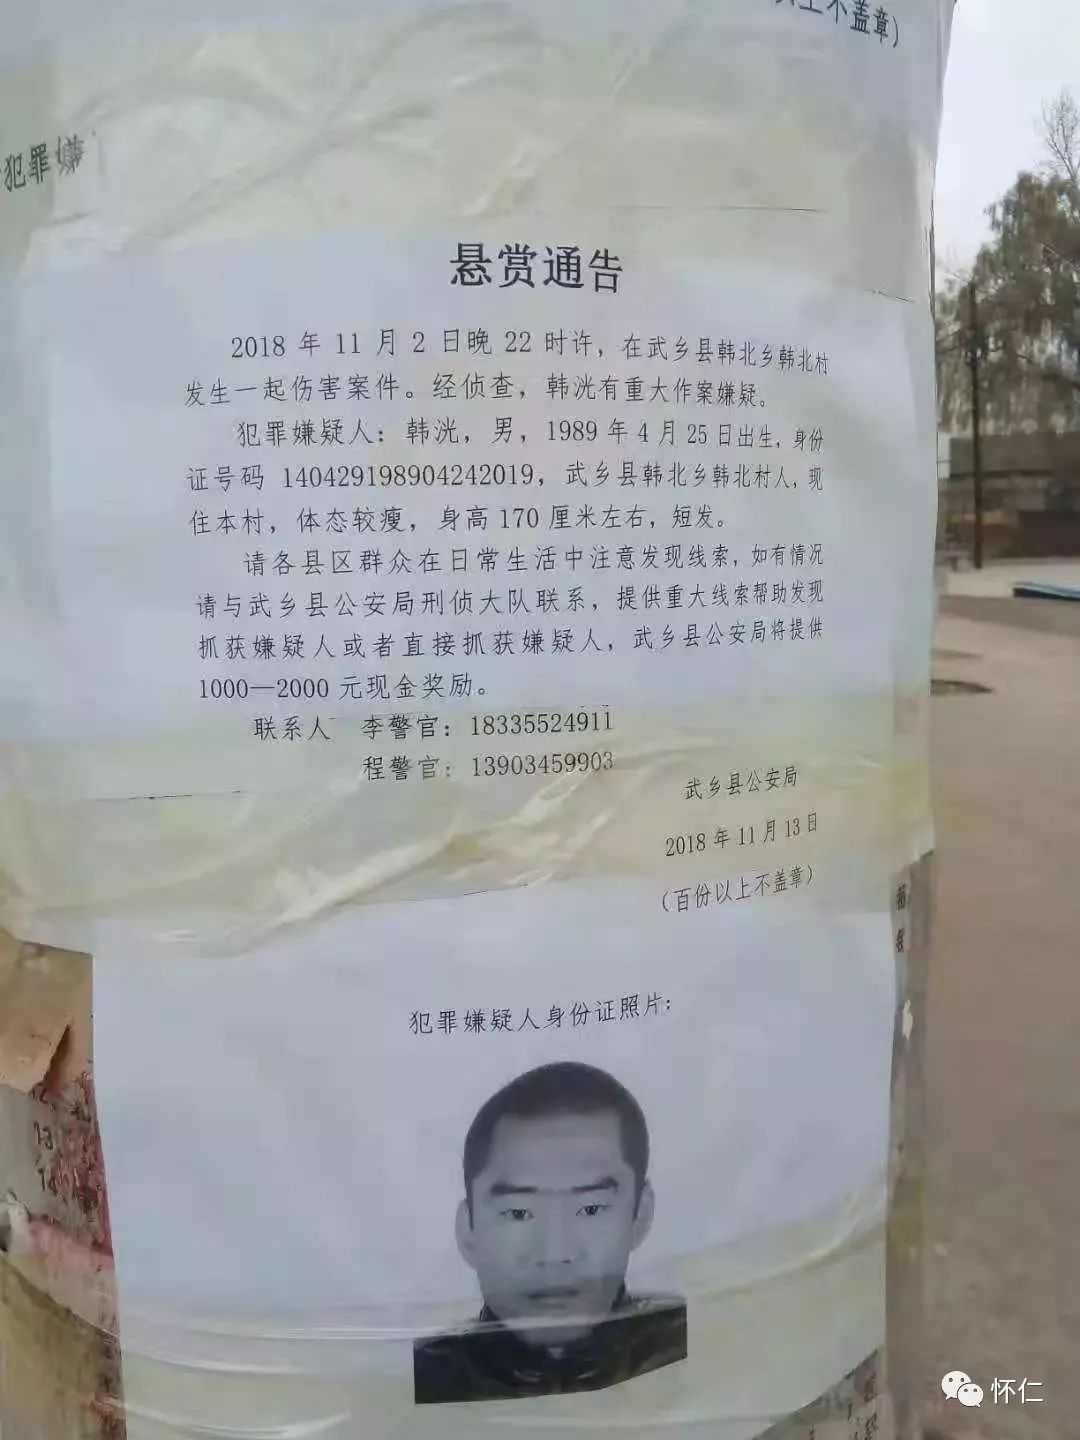 以上不盖章）
犯罪嫌
悬赏通告
2018 年 11 月 2 日晚 22 时许，在武乡县韩北乡韩北村
发生一起伤害案件。经侦查，韩洸有重大作案嫌疑。
犯罪嫌疑人：韩洸，男，1989 年 4 月 25 日出生，身份
证号码 140429198904242019，武乡县韩北乡韩北村人，现
住本村，体态较瘦，身高 170 厘米左右，短发。
请各县区群众在日常生活中注意发现线索，如有情况
请与武乡县公安局刑侦大队联系，提供重大线索帮助发现
抓获嫌疑人或者直接抓获嫌疑人，武乡县公安局将提供
1000—2000 元现金奖励。
联系人 李警官：18335524911
程警官：13903459903
武乡县公安局
2018 年 11 月 13 日
（百份以上不盖章）
犯罪嫌疑人身份证照片：
13
怀仁